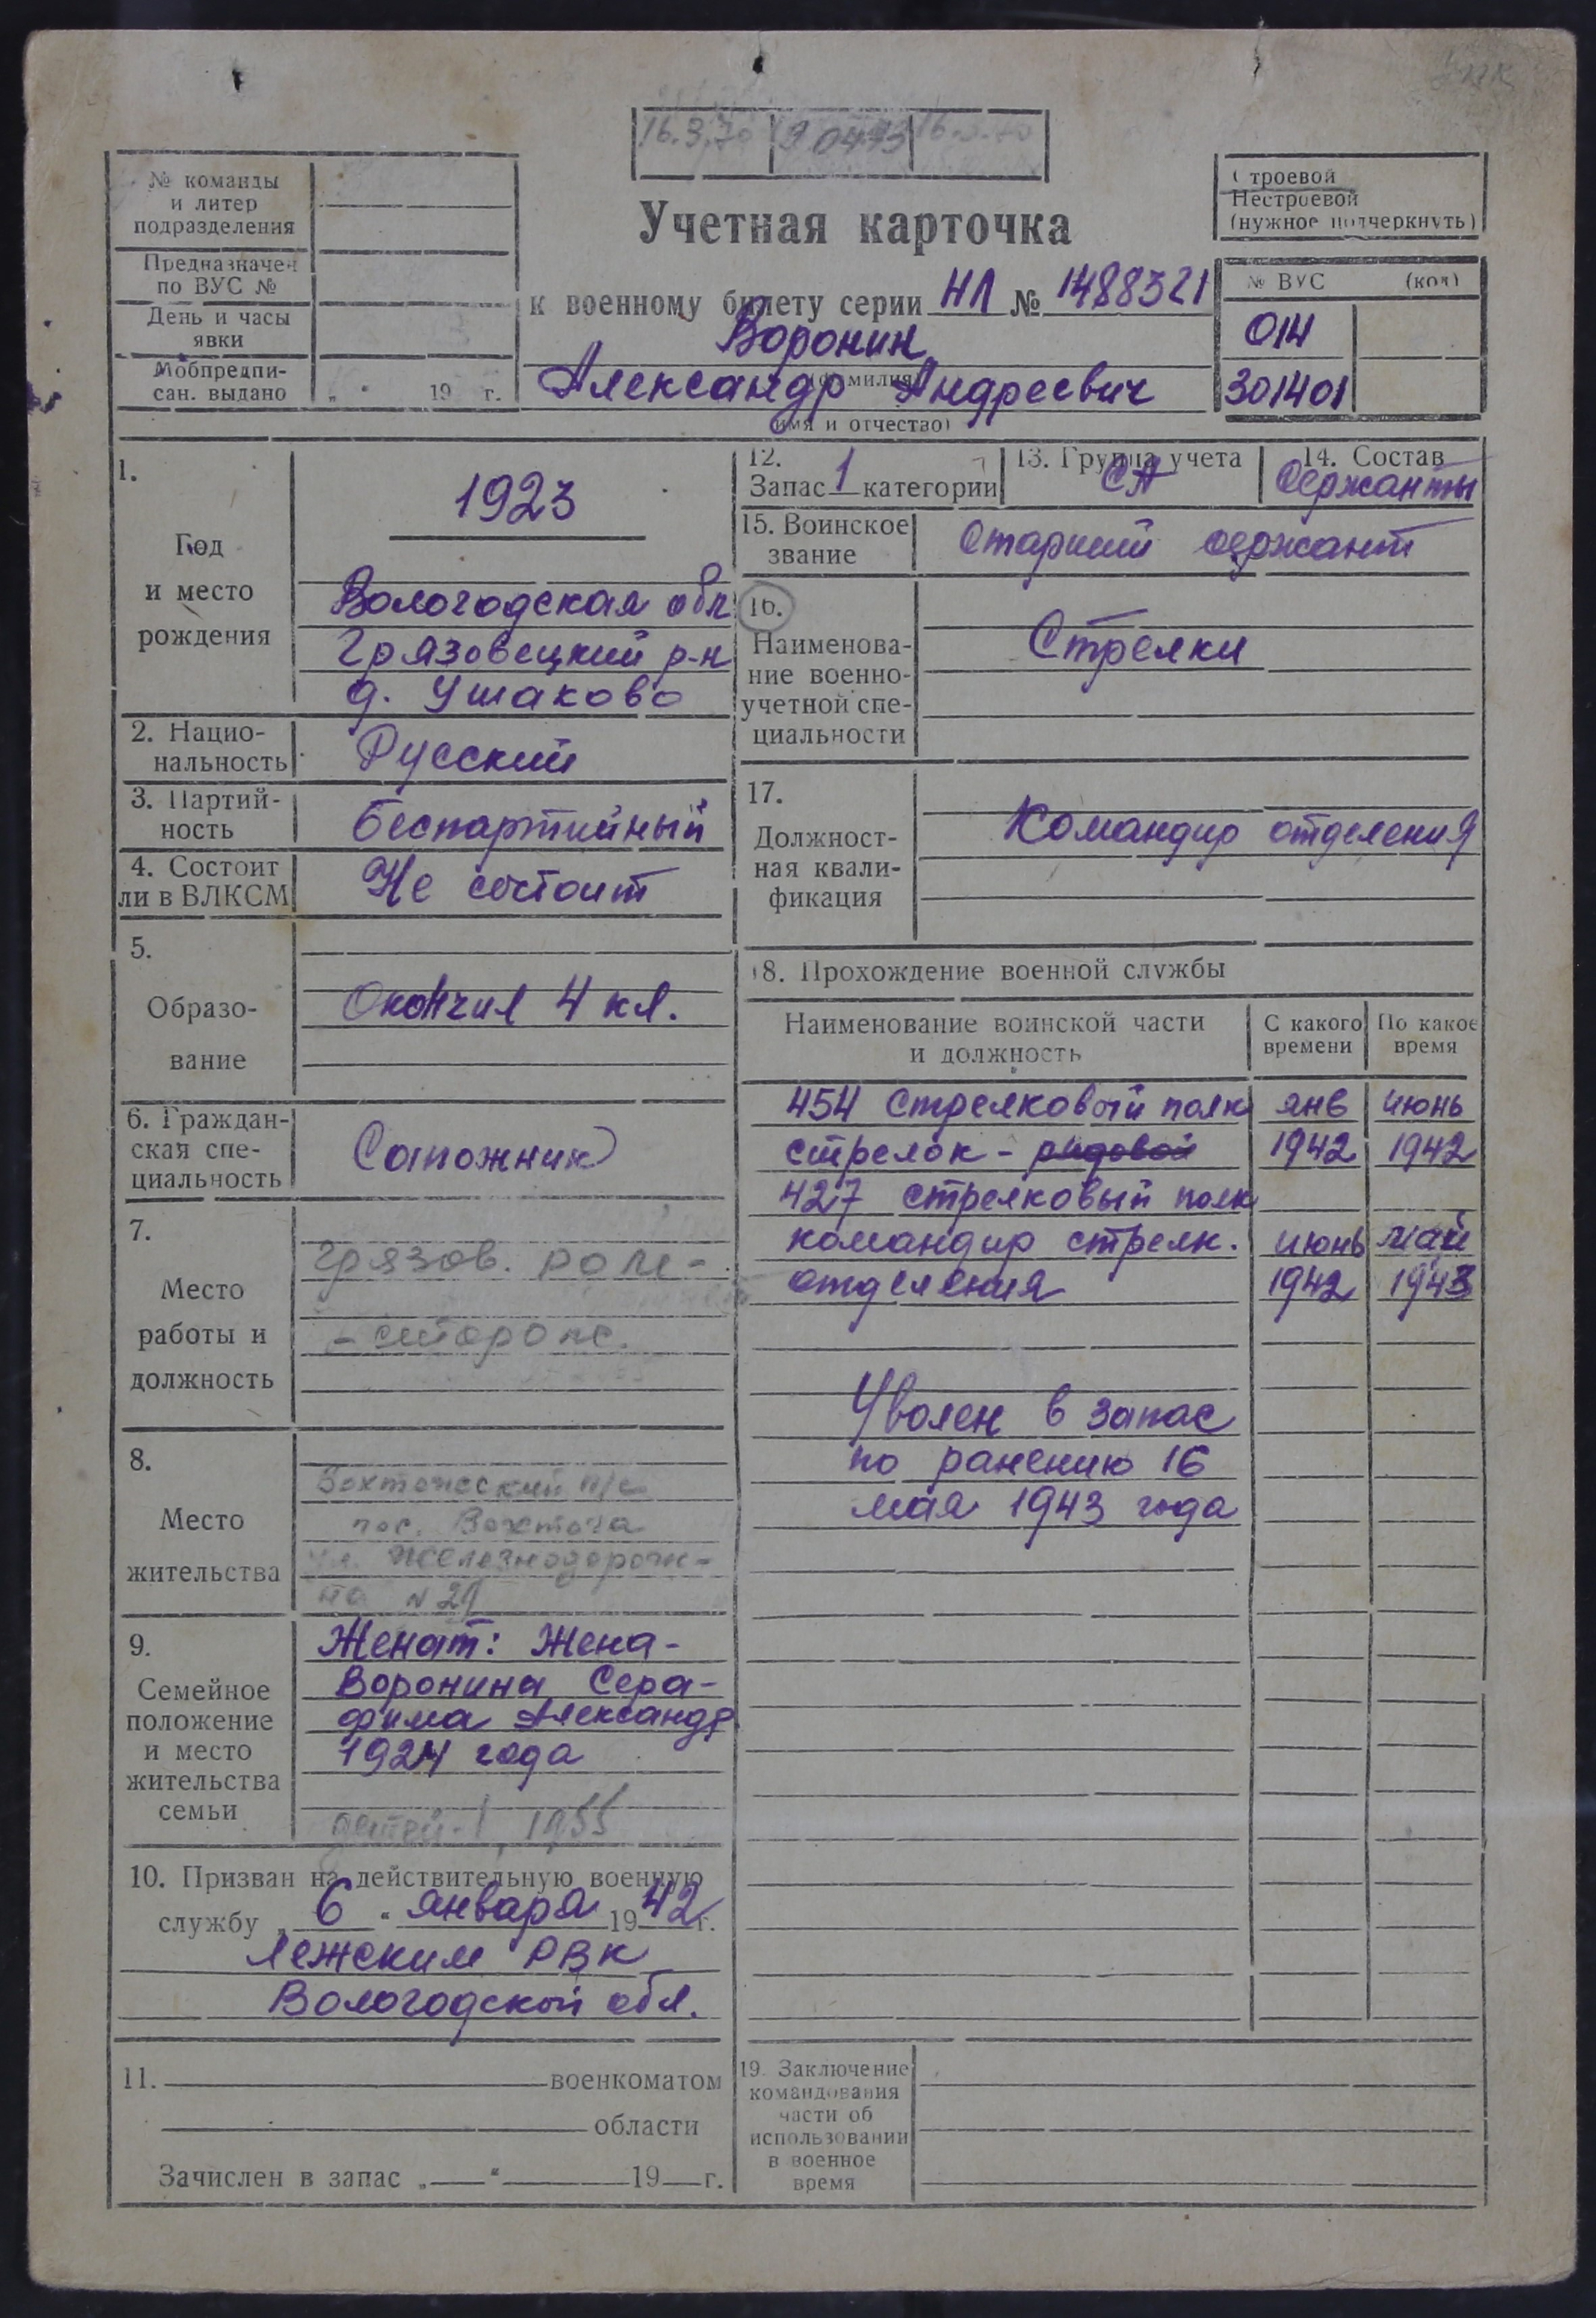 16.3.70
Учетная карточка
к военному билету серии НЛ № 1488321
Воронин
(фамилия)
Александр Андреевич
(имя и отчество)
№ команды
и литер
подразделения
Предназначен
по ВУС №
День и часы
явки
Мобпредпи-
сан. выдано „ “ 19 г.
Строевой
Нестроевой
(нужное подчеркнуть)
№ ВУС (код)
014
301401
1.
Год
и место
рождения
1923
Вологодская обл
Грязовецкий р-н
д. Ушаково
2. Нацио-
нальность
Русский
3. Партий-
ность
беспартийный
4. Состоит
ли в ВЛКСМ
Не состоит
5.
Образо-
вание
Окончил 4 кл.
6. Граждан-
ская спе-
циальность
Сапожник
7.
Место
работы и
должность
Грязов.
8.
Место
жительства
пос. Вохтога
ул. Железнодорожн-
на № 29
9.
Семейное
положение
и место
жительства
семьи
Женат: Жена-
Воронина Сера-
фима Александр
1924 года
детей-1, 1955
10. Призван на действительную военную
службу „ 6 “ января 1942 г.
Лежским РВК
Вологодской обл.
11. военкоматом
области
Зачислен в запас „ “ 19 г.
12.
Запас 1 категории
13. Группа учета
СА
14. Состав
Сержанты
15. Воинское
звание
Старший сержант
16.
Наименова-
ние военно-
учетной спе-
циальности
Стрелки
17.
Должност-
ная квали-
фикация
Командир отделения
18. Прохождение военной службы
Наименование воинской части
и должность
С какого
времени
По какое
время
454 стрелковый полк янв июнь
стрелок - рядовой 1942 1942
427 стрелковый полк
командир стрелк. июнь май
отделения 1942 1943
Уволен в запас
по ранению 16
мая 1943 года
19. Заключение
командования
части об
использовании
в военное
время